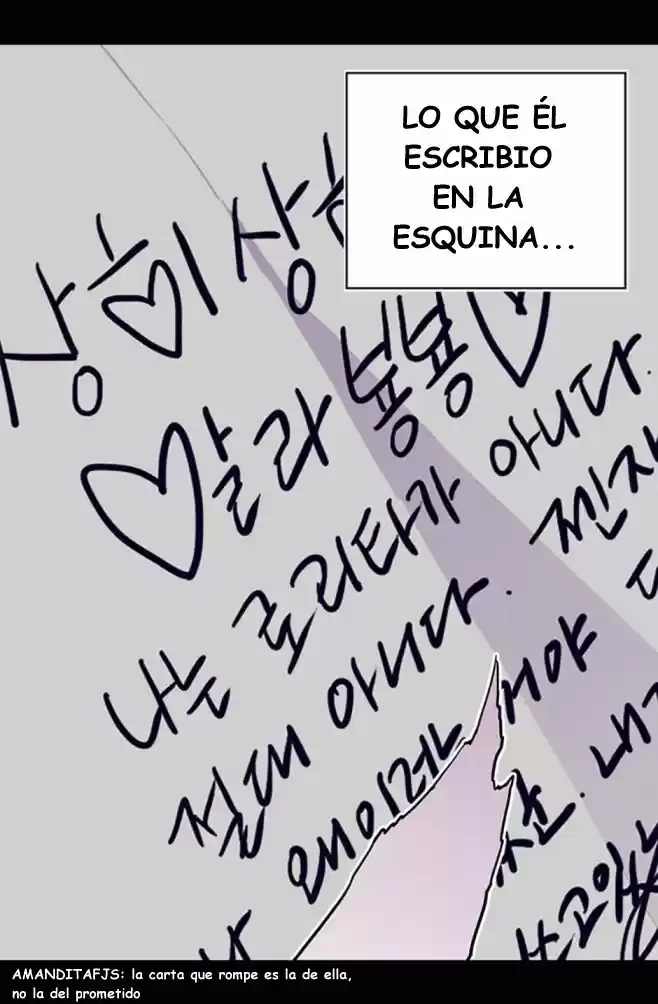 LO QUE ÉL
ESCRIBIO
EN LA
ESQUINA...
상히상
말라 뿅뿅
나는 로리타가 아니다.
절대 아니다. 찐자
왜이러는 거야
AMANDITAFJS: la carta que rompe es la de ella,
no la del prometido